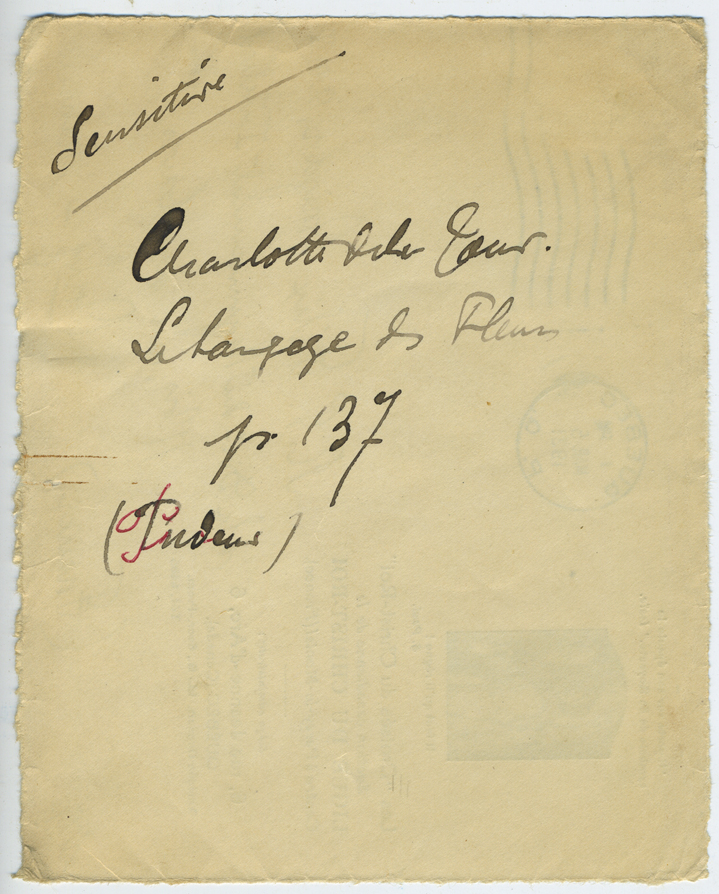 Sensitive
Charlotte de la Tour.
Le Langage des Fleurs
p. 137
(Pudeur)